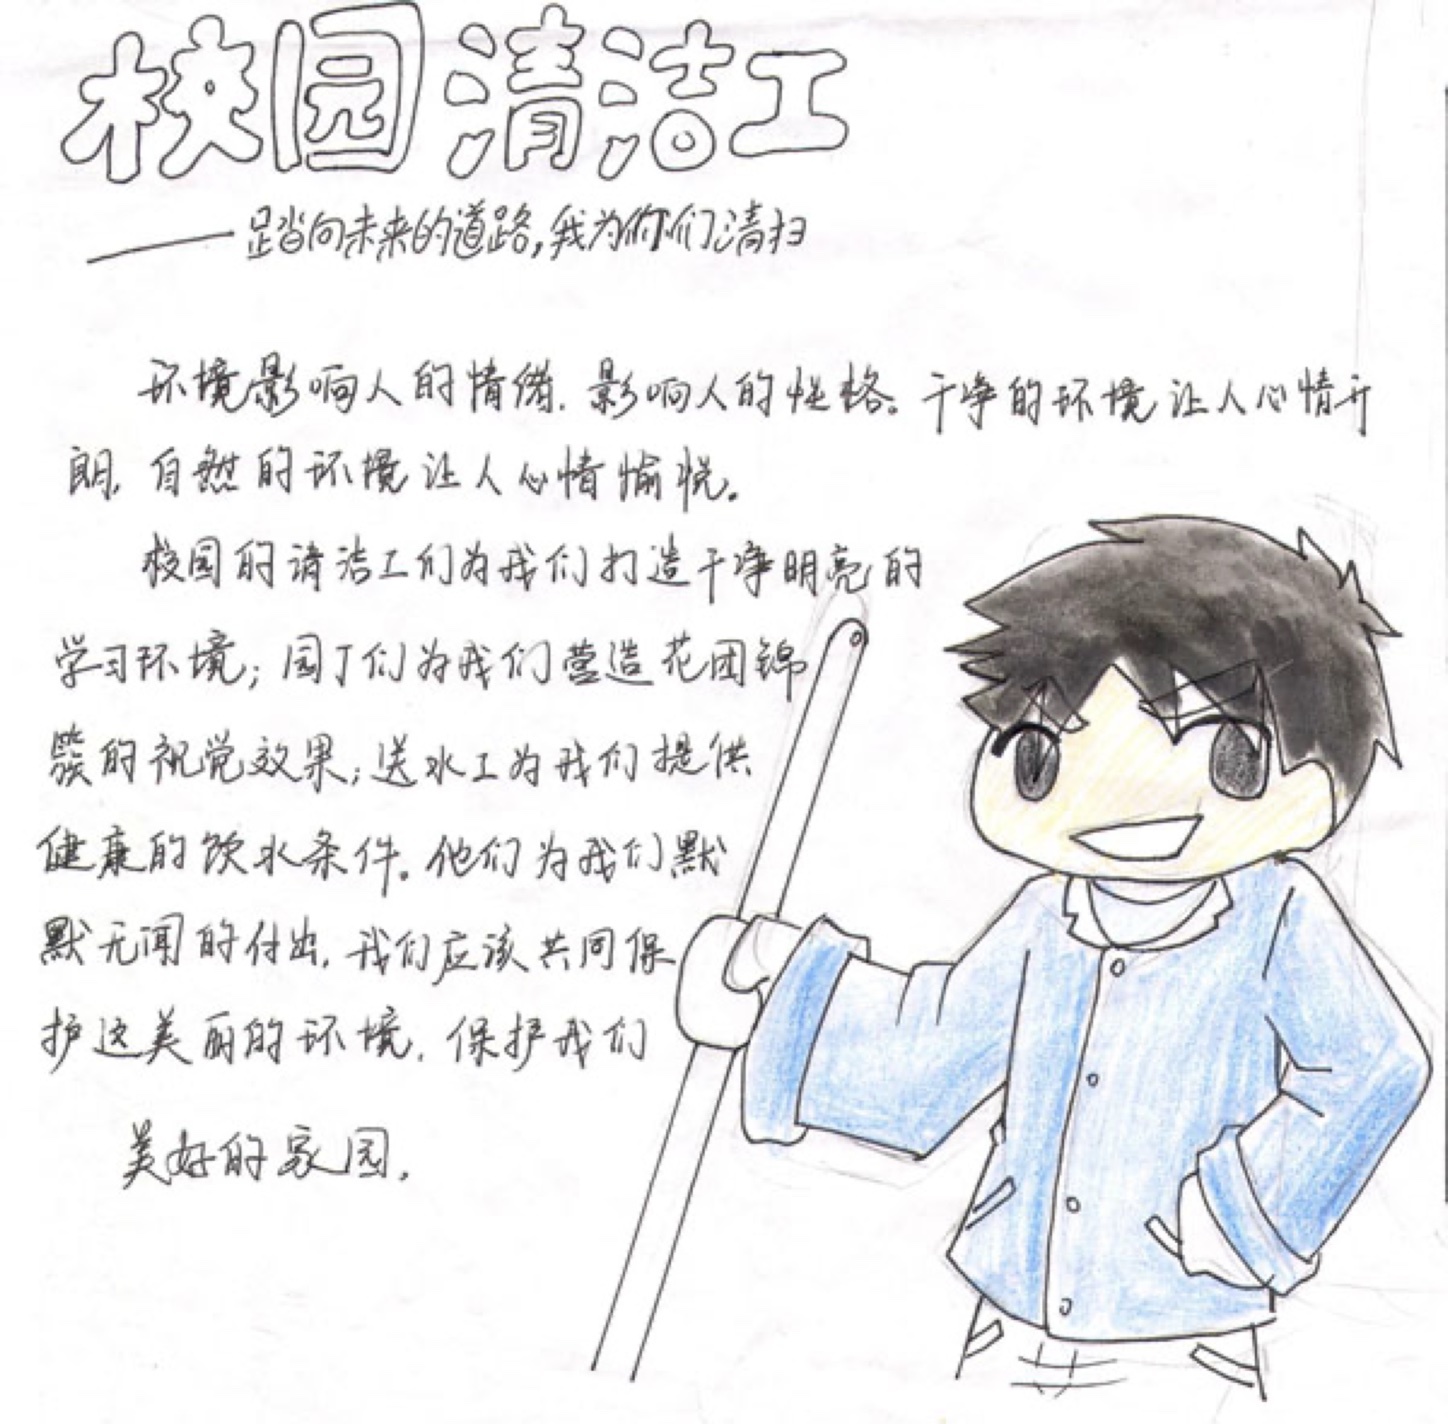 校园清洁工
——踏向未来的道路,我为你们清扫
环境影响人的情绪.影响人的性格。干净的环境让人心情开
朗.自然的环境让人心情愉悦。
校园的清洁工们为我们打造干净明亮的
学习环境;园丁们为我们营造花团锦
簇的视觉效果;送水工为我们提供
健康的饮水条件。他们为我们默
默无闻的付出.我们应该共同保
护这美丽的环境.保护我们
美好的家园.